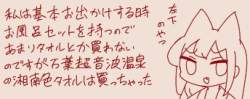 私は基本お出かけする時
お風呂セットを持つので
あまりタオルとか買わない
のですが万葉超音波温泉
の湘南色タオルは買っちゃった
左下のやつ